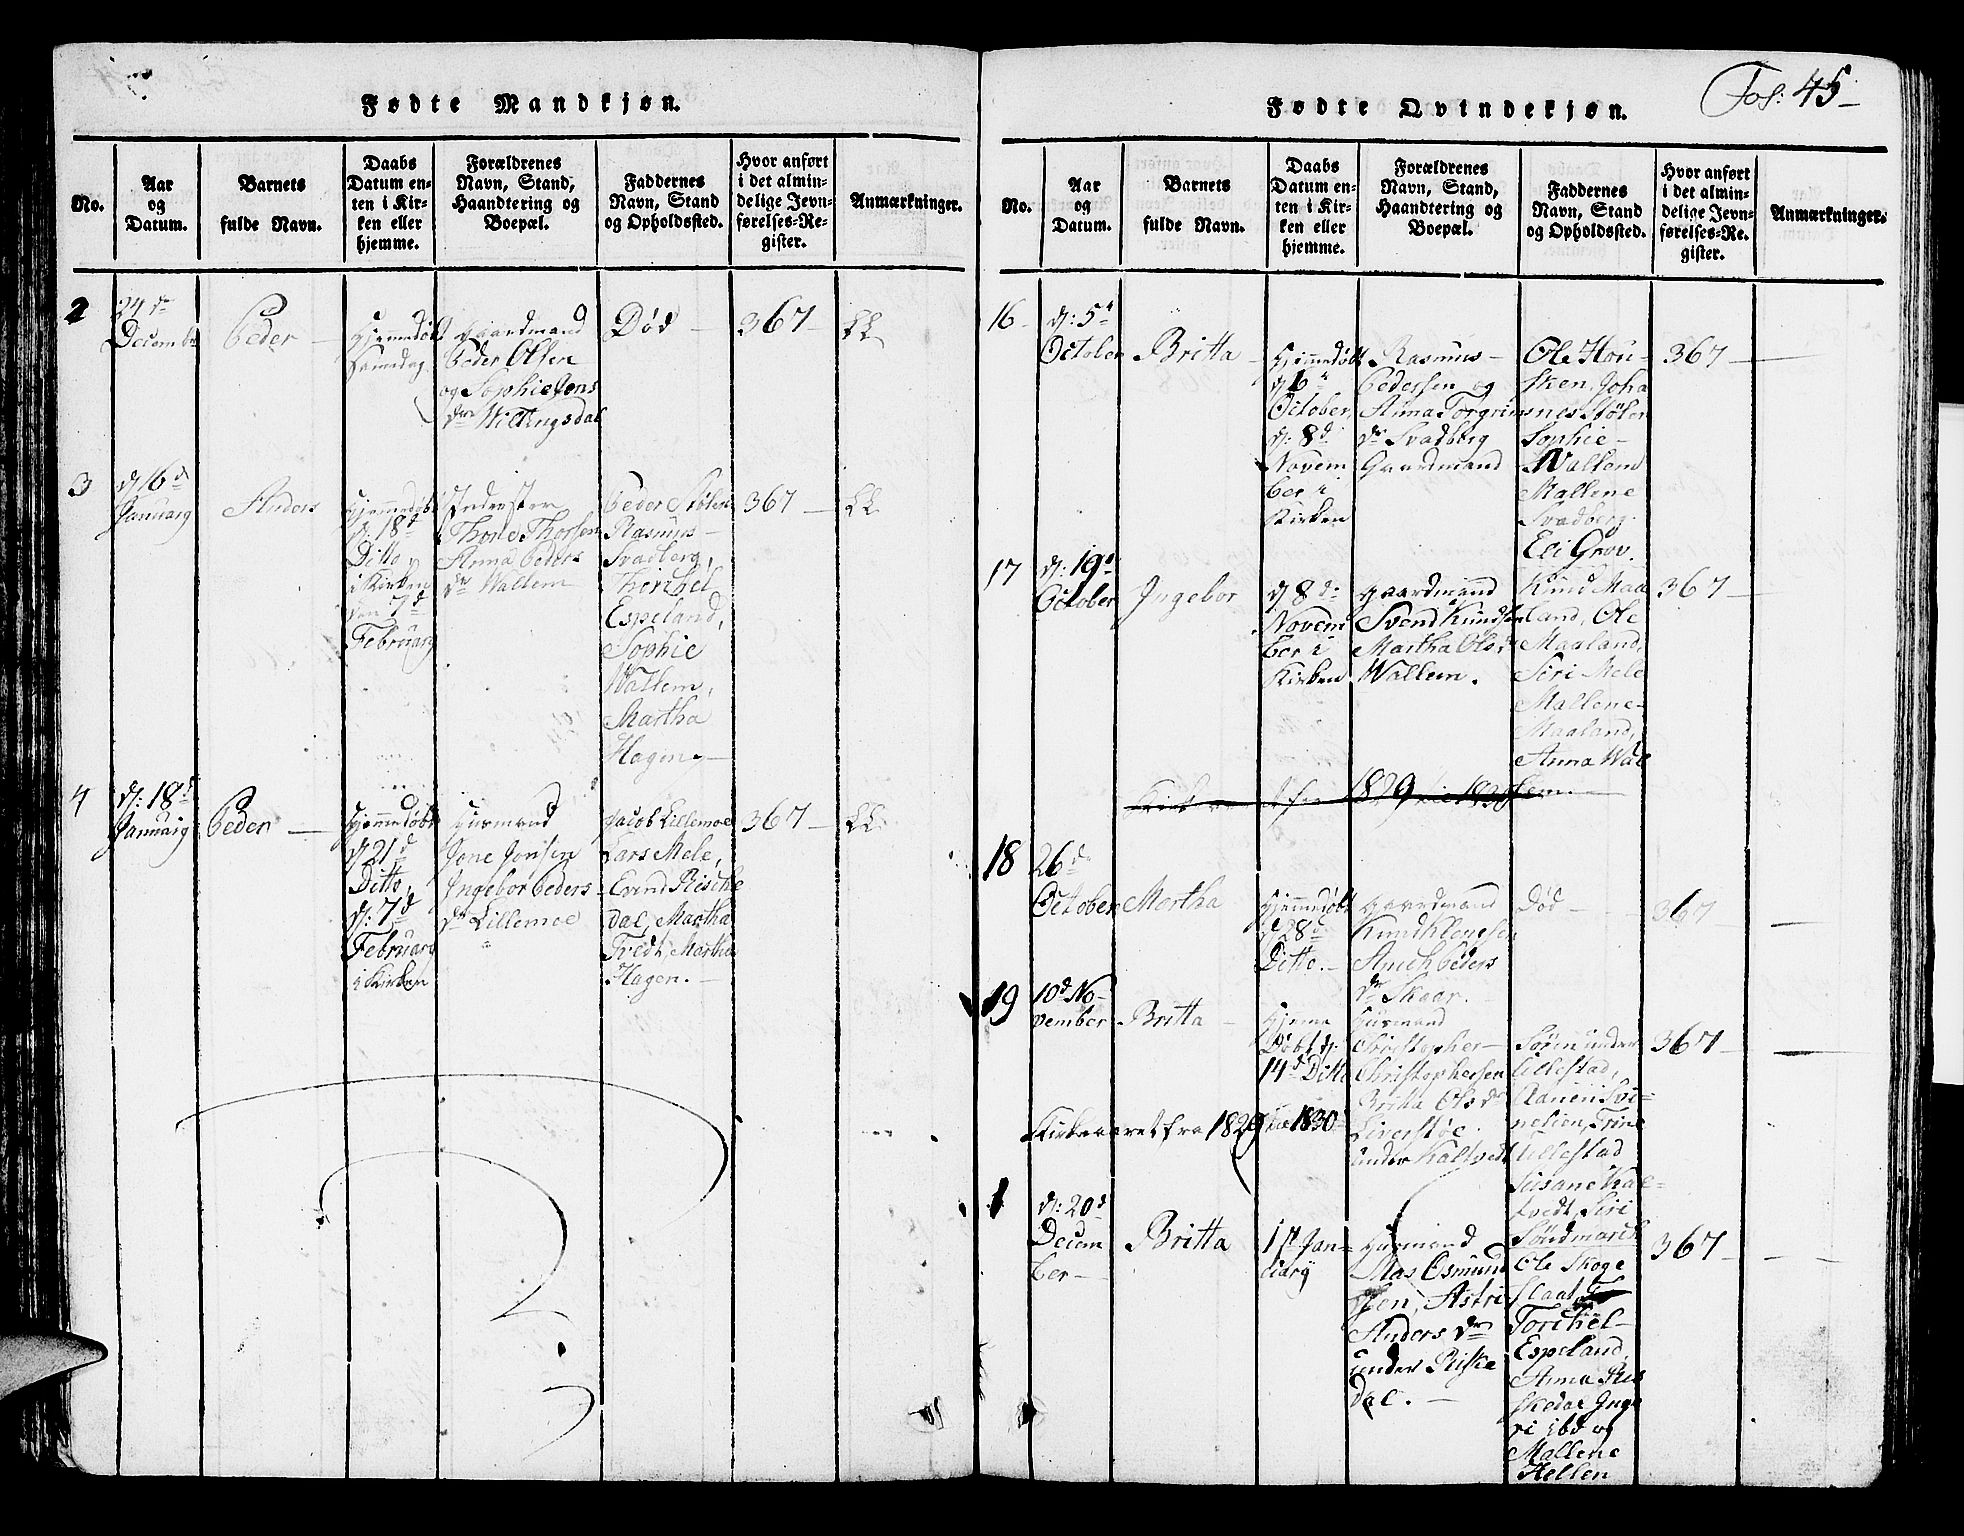 Fødte Mandkjøn.
No.
Aar
og
Datum.
Barnets
fulde Navn.
Daabs
Datum en-
ten i Kir-
ken eller
hjemme.
Forældrenes
Navn, Stand,
Haandtering og
Boepæl.
Faddernes
Navn, Stand
og Opholdssted.
Hvor anført
i det almin-
delige Jevn-
førelses-Re-
gister.
Anmærkninger.
2
24de
Decembr
Peder —
Hjemmedøbt
Samedag
Gaardmand
Peder Olsen
og Sophie Jons
dr Willingsdal
Død —
367 —
3
d 16d
Januarij
Anders
Hjemmedøbt
d: 18d
Ditto,
i Kirken
den 7d
Februarij
Inderster
Thone Thorsen
Anna Peders
dr Wallem
Peder Stølen
Rasmus —
Svadberg,
Thorkel
Espeland,
Sophie
Wallem,
Martha
Hagen. —
367 —
4
d: 18d
Januarij
Peder —
Hjemmedøbt
d 21d
Ditto,
d: 7d
Februarij
i Kirken
Huusmand
Jone Jonsen
Ingebor Peders
dr Lillemoe
Jacob Lillemoe
Lars Mele,
Evind Riskke
dal, Martha
Tvedt, Martha
Hagen. —
367 —
Fol: 45 —
Fødte Qvindekjøn.
No.
Aar
og
Datum.
Barnets
fulde Navn.
Daabs
Datum en-
ten i Kir-
ken eller
hjemme.
Forældrenes
Navn, Stand,
Haandtering og
Boepæl.
Faddernes
Navn, Stand
og Opholdssted.
Hvor anført
i det almin-
delige Jevn-
førelses-Re-
gister.
Anmærkninger.
16
d: 5te
October
Britta —
Hjemmedøbt
d 6te
October,
d: 8d
Novem
ber i
Kirken
Rasmus —
Pedersen og
Anna Torgrims
dr Svadberg
Gaardmand
Ole Hou-
sken, Joha
nes Stølen
Sophie —
Wallem
Mallene
Svadberg.
Eli Grov.
367 —
17
d: 19d
October
Ingebor
d 8d:
Novem
ber i
Kirken
Gaardmand
Svend Knudsen
Martha Olsd
Wallem.
Knud Maa
land, Ole
Maaland,
Siri Mele
Mallene
Maaland,
Anna Wal
lem. —
367 —
18
26d
October
Martha
Hjemmedøbt
d 28d
Ditto. —
Gaardmand
Knud
Peders
dr Skaar.
Død —
367
19
10d No-
vember
Britta —
Hjemme
Døbt d:
14d Ditto
Huusmand
Christopher —
Christophersen
Britta Olsdr
under Kaltvedt
Søren under
Lillestad,
Trine
Lillestad
Susane Kal-
tvedt, Siri
Søndmarck
367 —
Kirkeaaret fra 1829 til 1830
1
d: 20d
Decem
ber —
Britta
17 Jan-
uarij
Huusmand
Mas Osmund
sen, Astri
Anders dr
under Riske
dal. —
Ole Skoge
Torchel
Espeland,
Anna Ris
kedal Inge
ri ibd og
Mallene
Hellen
367 —